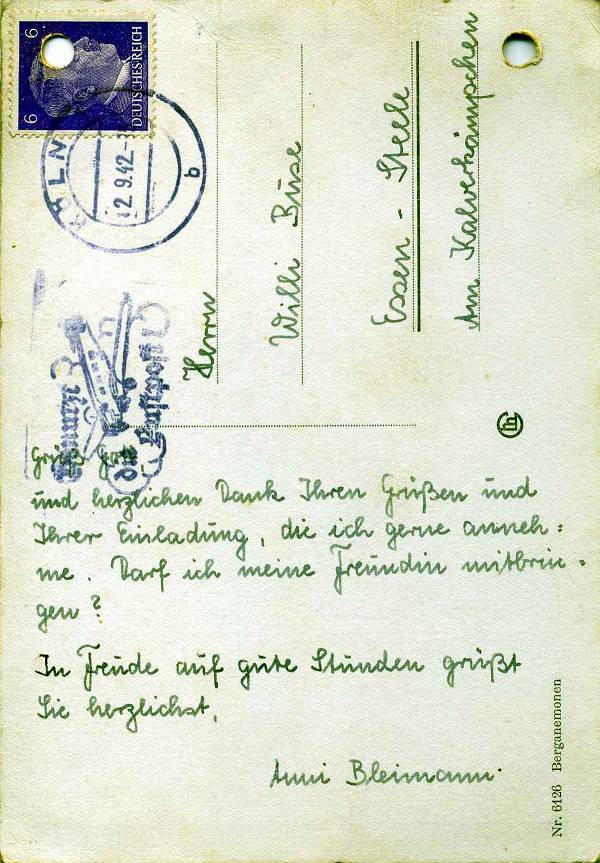 6 6
DEUTSCHES REICH
KÖLN
2.9.42
b
Benutzt
die Luftpost
Herrn
Willi Buse
Essen - Steele
Am Kalverkämpchen
Grüß Gott
und herzlichen Dank Ihren Grüßen und
Ihrer Einladung, die ich gerne anneh=
me. Darf ich meine Freundin mitbrin=
gen?
In Freude auf gute Stunden grüßt
Sie herzlichst,
Anni Bleimann.
Nr. 6126 Berganemonen